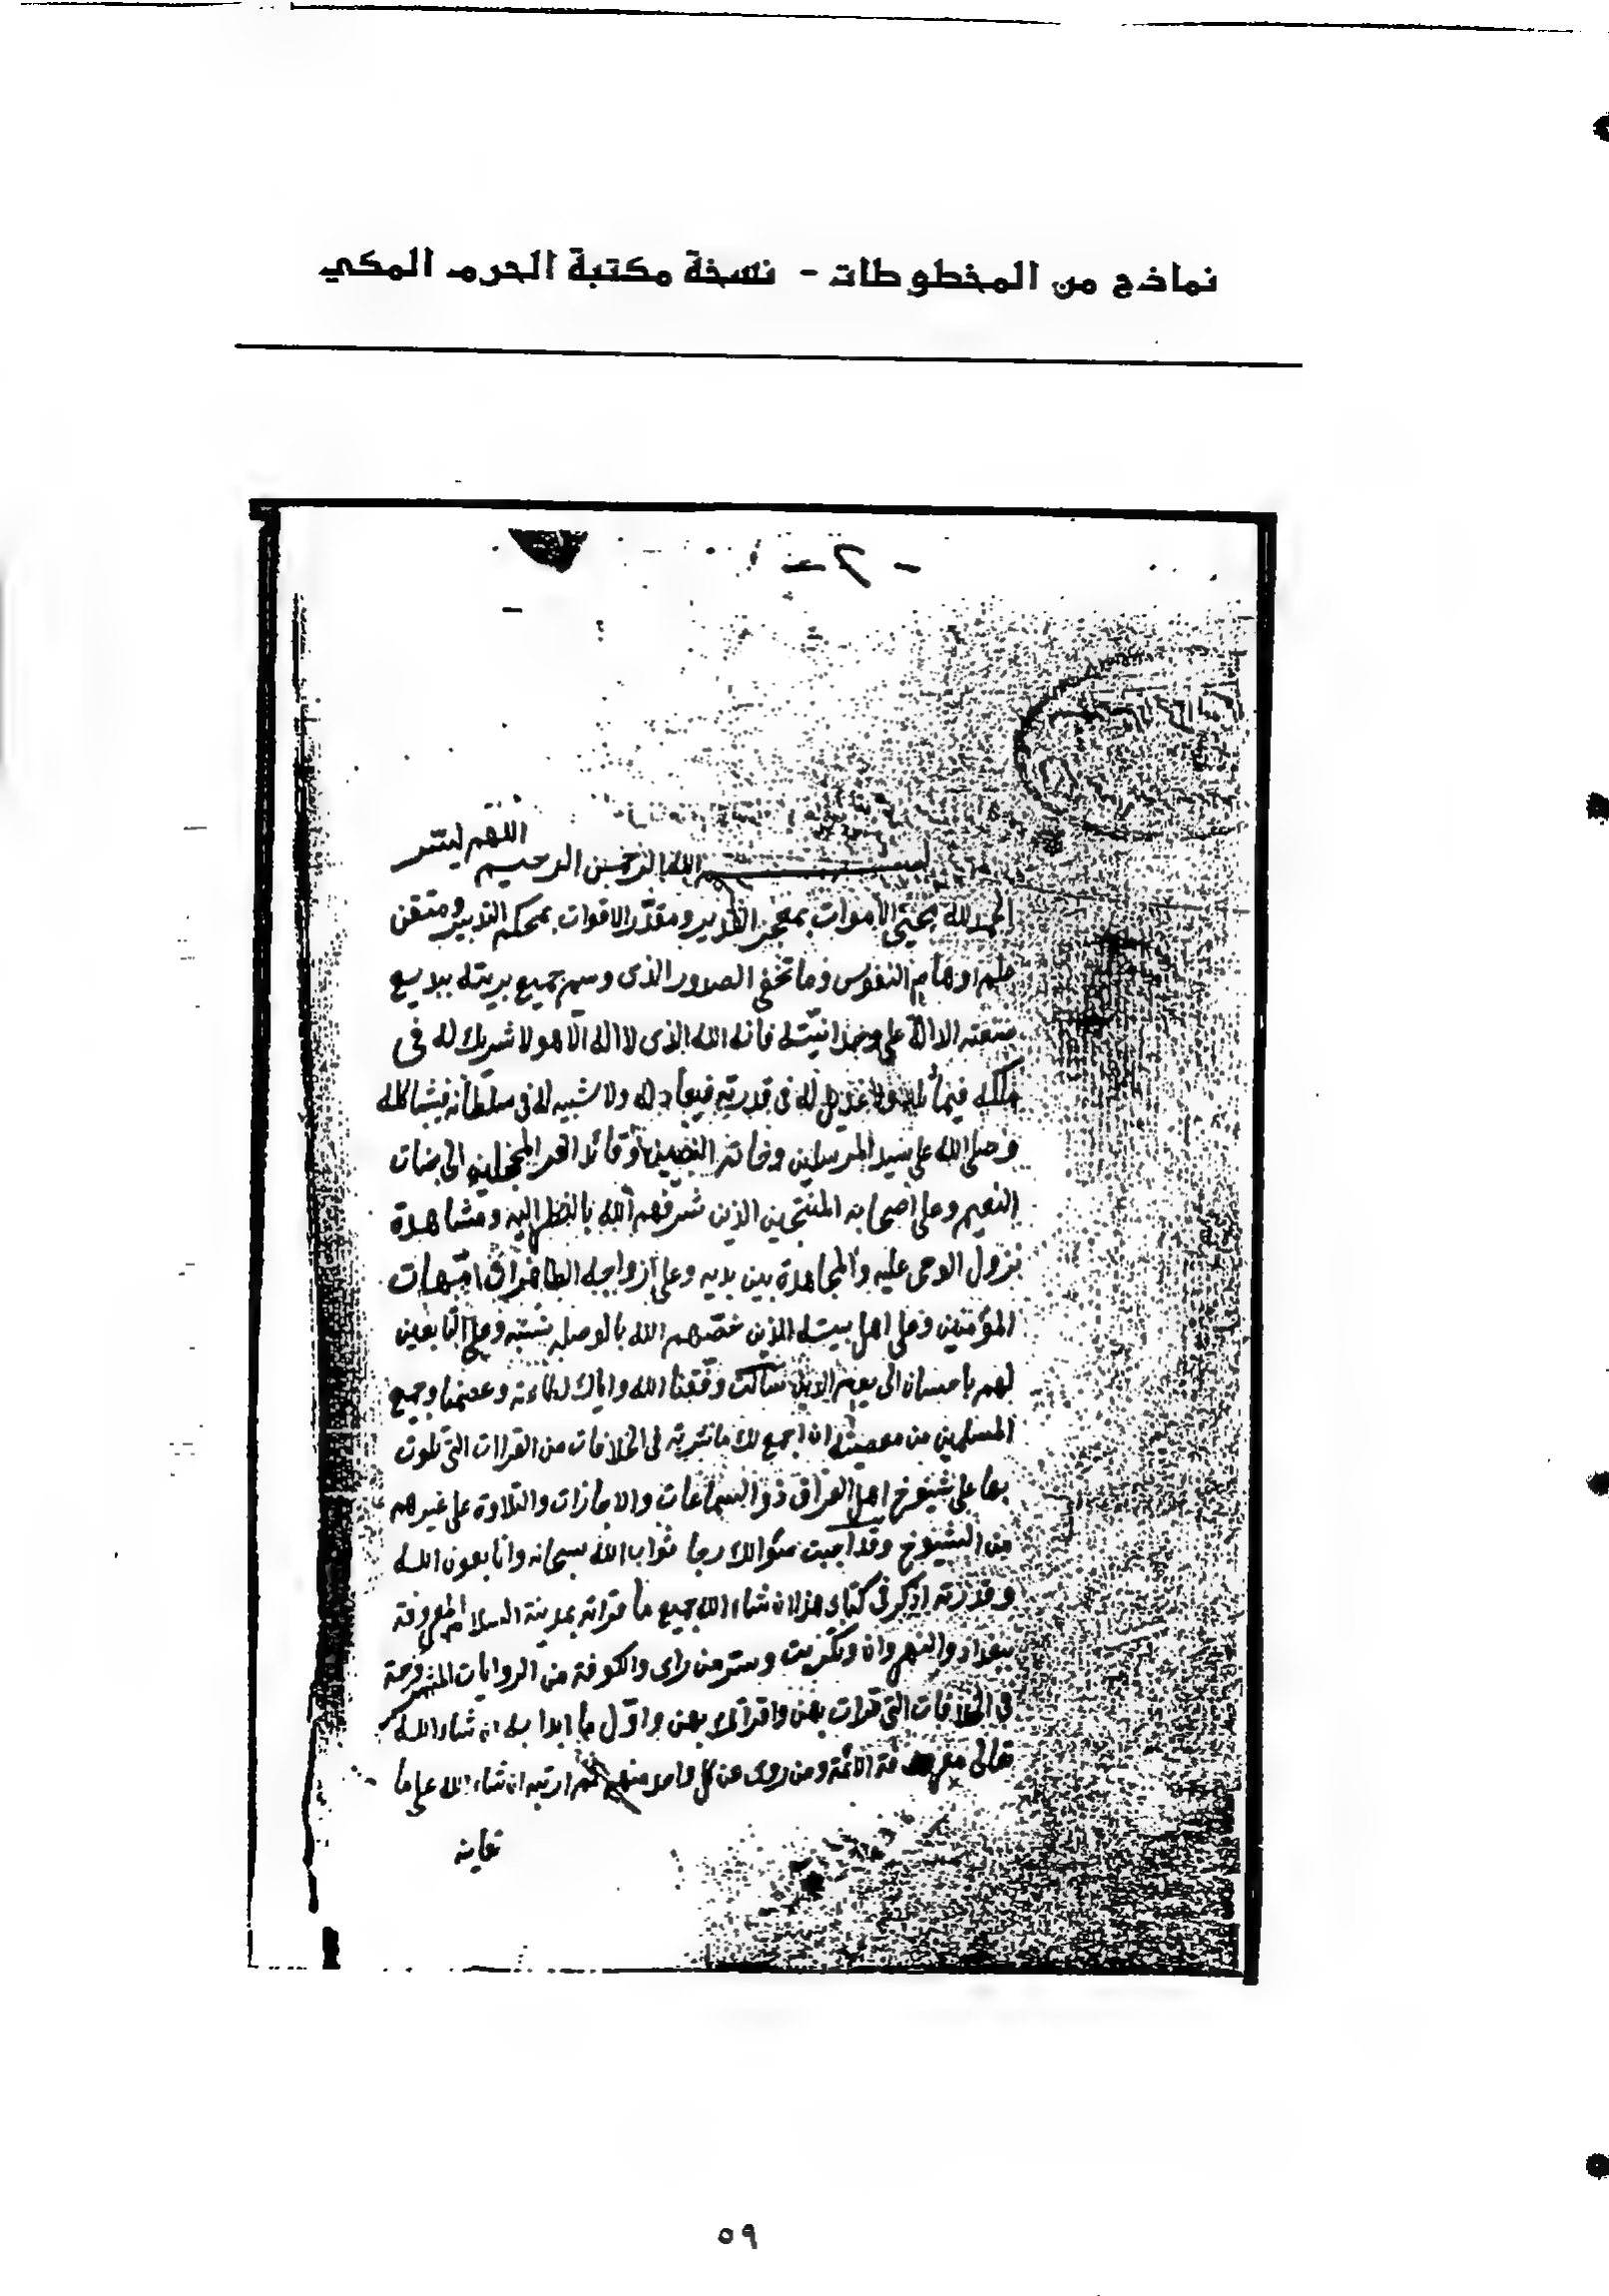 نماذج من المخطوطات - نسخة مكتبة الحرم المكي
- ٢ -
اللهم يسر
بسم الله الرحمن الرحيم
الحمد لله محيي الأموات بمعجز التقدير ومقدّر الاقوات بمحكم التدبير ومتقن
النفوس وما تخفي الصدور الذى وسم جميع بريته ببديع
صنعته الدالة على وحدانيته فانه الله الذى لا اله الا هو لا شريك له فى
ملكه فيماثله ولا عديل له فى قدرته فيعادله ولا شبيه له فى سلطانه فيشاكله
وصلى الله على سيد المرسلين وخاتم النبيين وقائد الغر المحجلين الى جنات
النعيم وعلى اصحابه المنتجبين الذين شرفهم الله بالنظر اليه ومشاهدة
نزول الوحى عليه والمجاهدة بين يديه وعلى ازواجه الطاهرات امّهات
المؤمنين وعلى اهل بيته الذين خصّهم الله بالوصلة بنسبته وعلى التابعين
لهم باحسان الى يوم الدين سألت وفّقنا الله واياك لطاعته وعصمنا وجميع
المسلمين من معصيته ان اجمع لك ما نثرته فى الخلافات من القراات التى تلوت
بها على شيوخ اهل العراق ذو السماعات والاجازات والتلاوة على غيرهم
من الشيوخ وقد اجبت سؤالك رجا ثواب الله سبحانه وانا بعون الله
وقدرته اذكر فى كتابى هذا ان شاء الله جميع ما قراته بمدينة السلام المعروفة
ببغداد والنهروان وتكريت وسر من راى والكوفة من الروايات المشروحة
فى الخلافات التى قرات بهن واقرأ لك بهن واوّل ما ابدا به ان شاء الله
تعالى معرفة الائمة ومن روى عن كل واحد منهم ثم ارتبه ان شاء الله على ما
٥٩